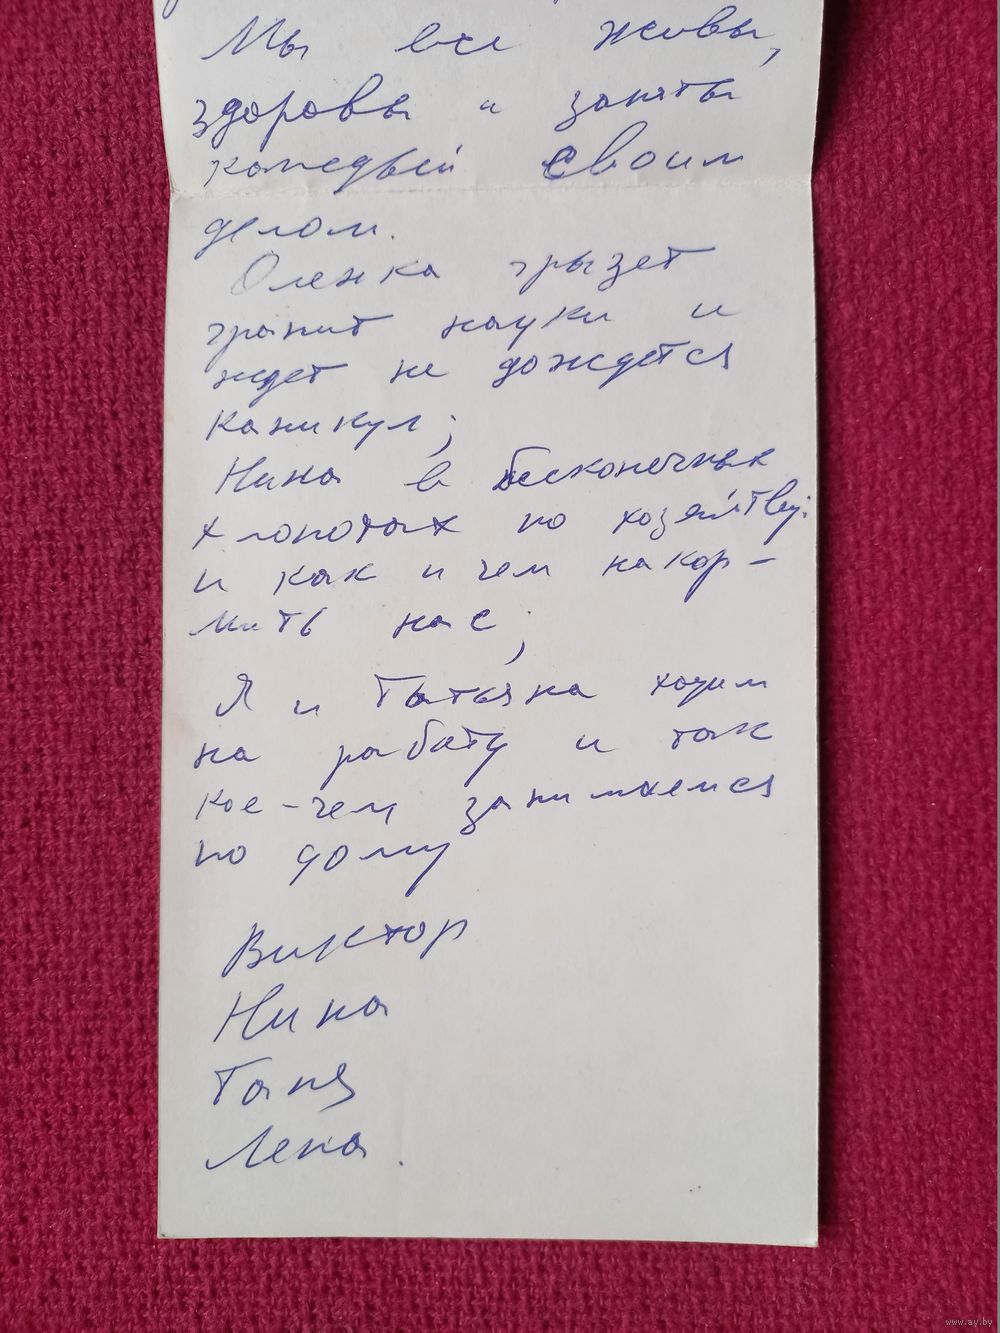 Мы все живы,
здоровы и заняты
каждый своим
делом.
Оленка грызет
гранит науки и
ждет не дождется
каникул;
Нина в бесконечных
хлопотах по хозяйству:
и как и чем накор-
мить нас;
Я и Татьяна ходим
на работу и так
кое-чем занимаемся
по дому
Виктор
Нина
Таня
Лена.
www.ay.by